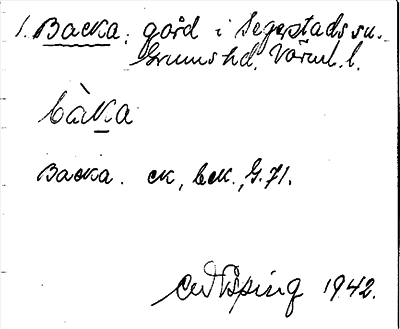 1. Backa. gård i Segerstads sn.
Grums hd. Värml. l.
bàka
Backa. ek, bek., G. 71.
1942.